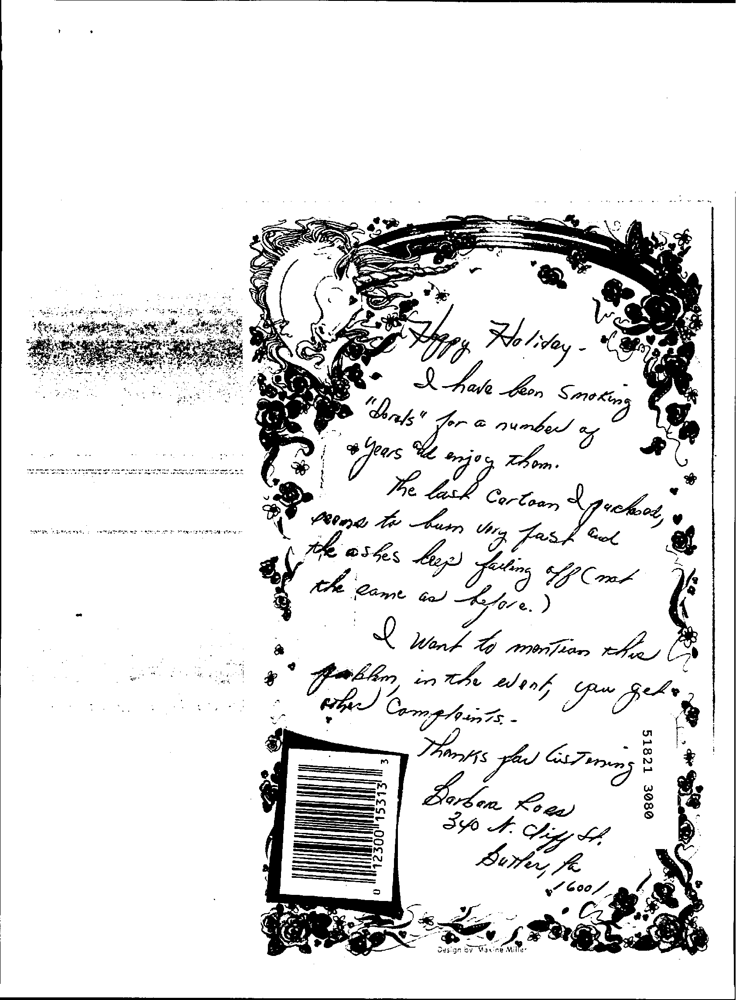 Happy Holiday -
I have been Smoking
"Dorals" for a number of
years and enjoy them.
The last Cartoon I purchased,
seems to burn very fast and
the ashes keep falling off (not
the same as before.)
I want to mention this
problem, in the event, you get
other Complaints. -
Thanks for listening
Barbara Ross
340 N. Cliff St.
Butler, Pa
16001
0 12300 15313 3
51821 3080
Design by Maxine Miller